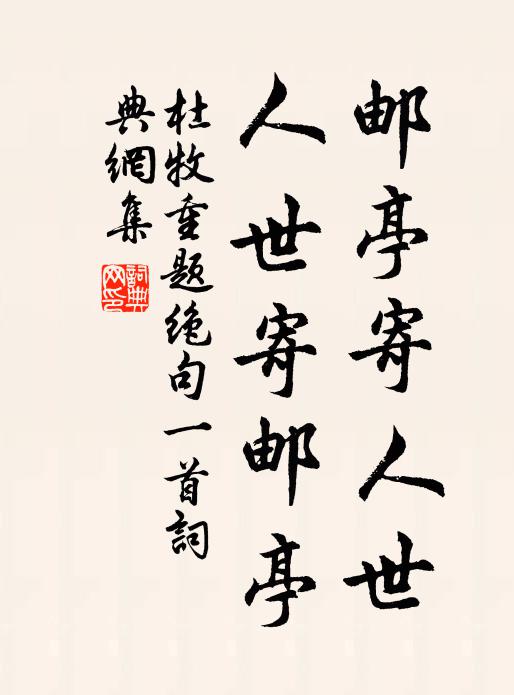 邮亭寄人世
人世寄邮亭
杜牧重题绝句一首詞
典網集
詞典网印